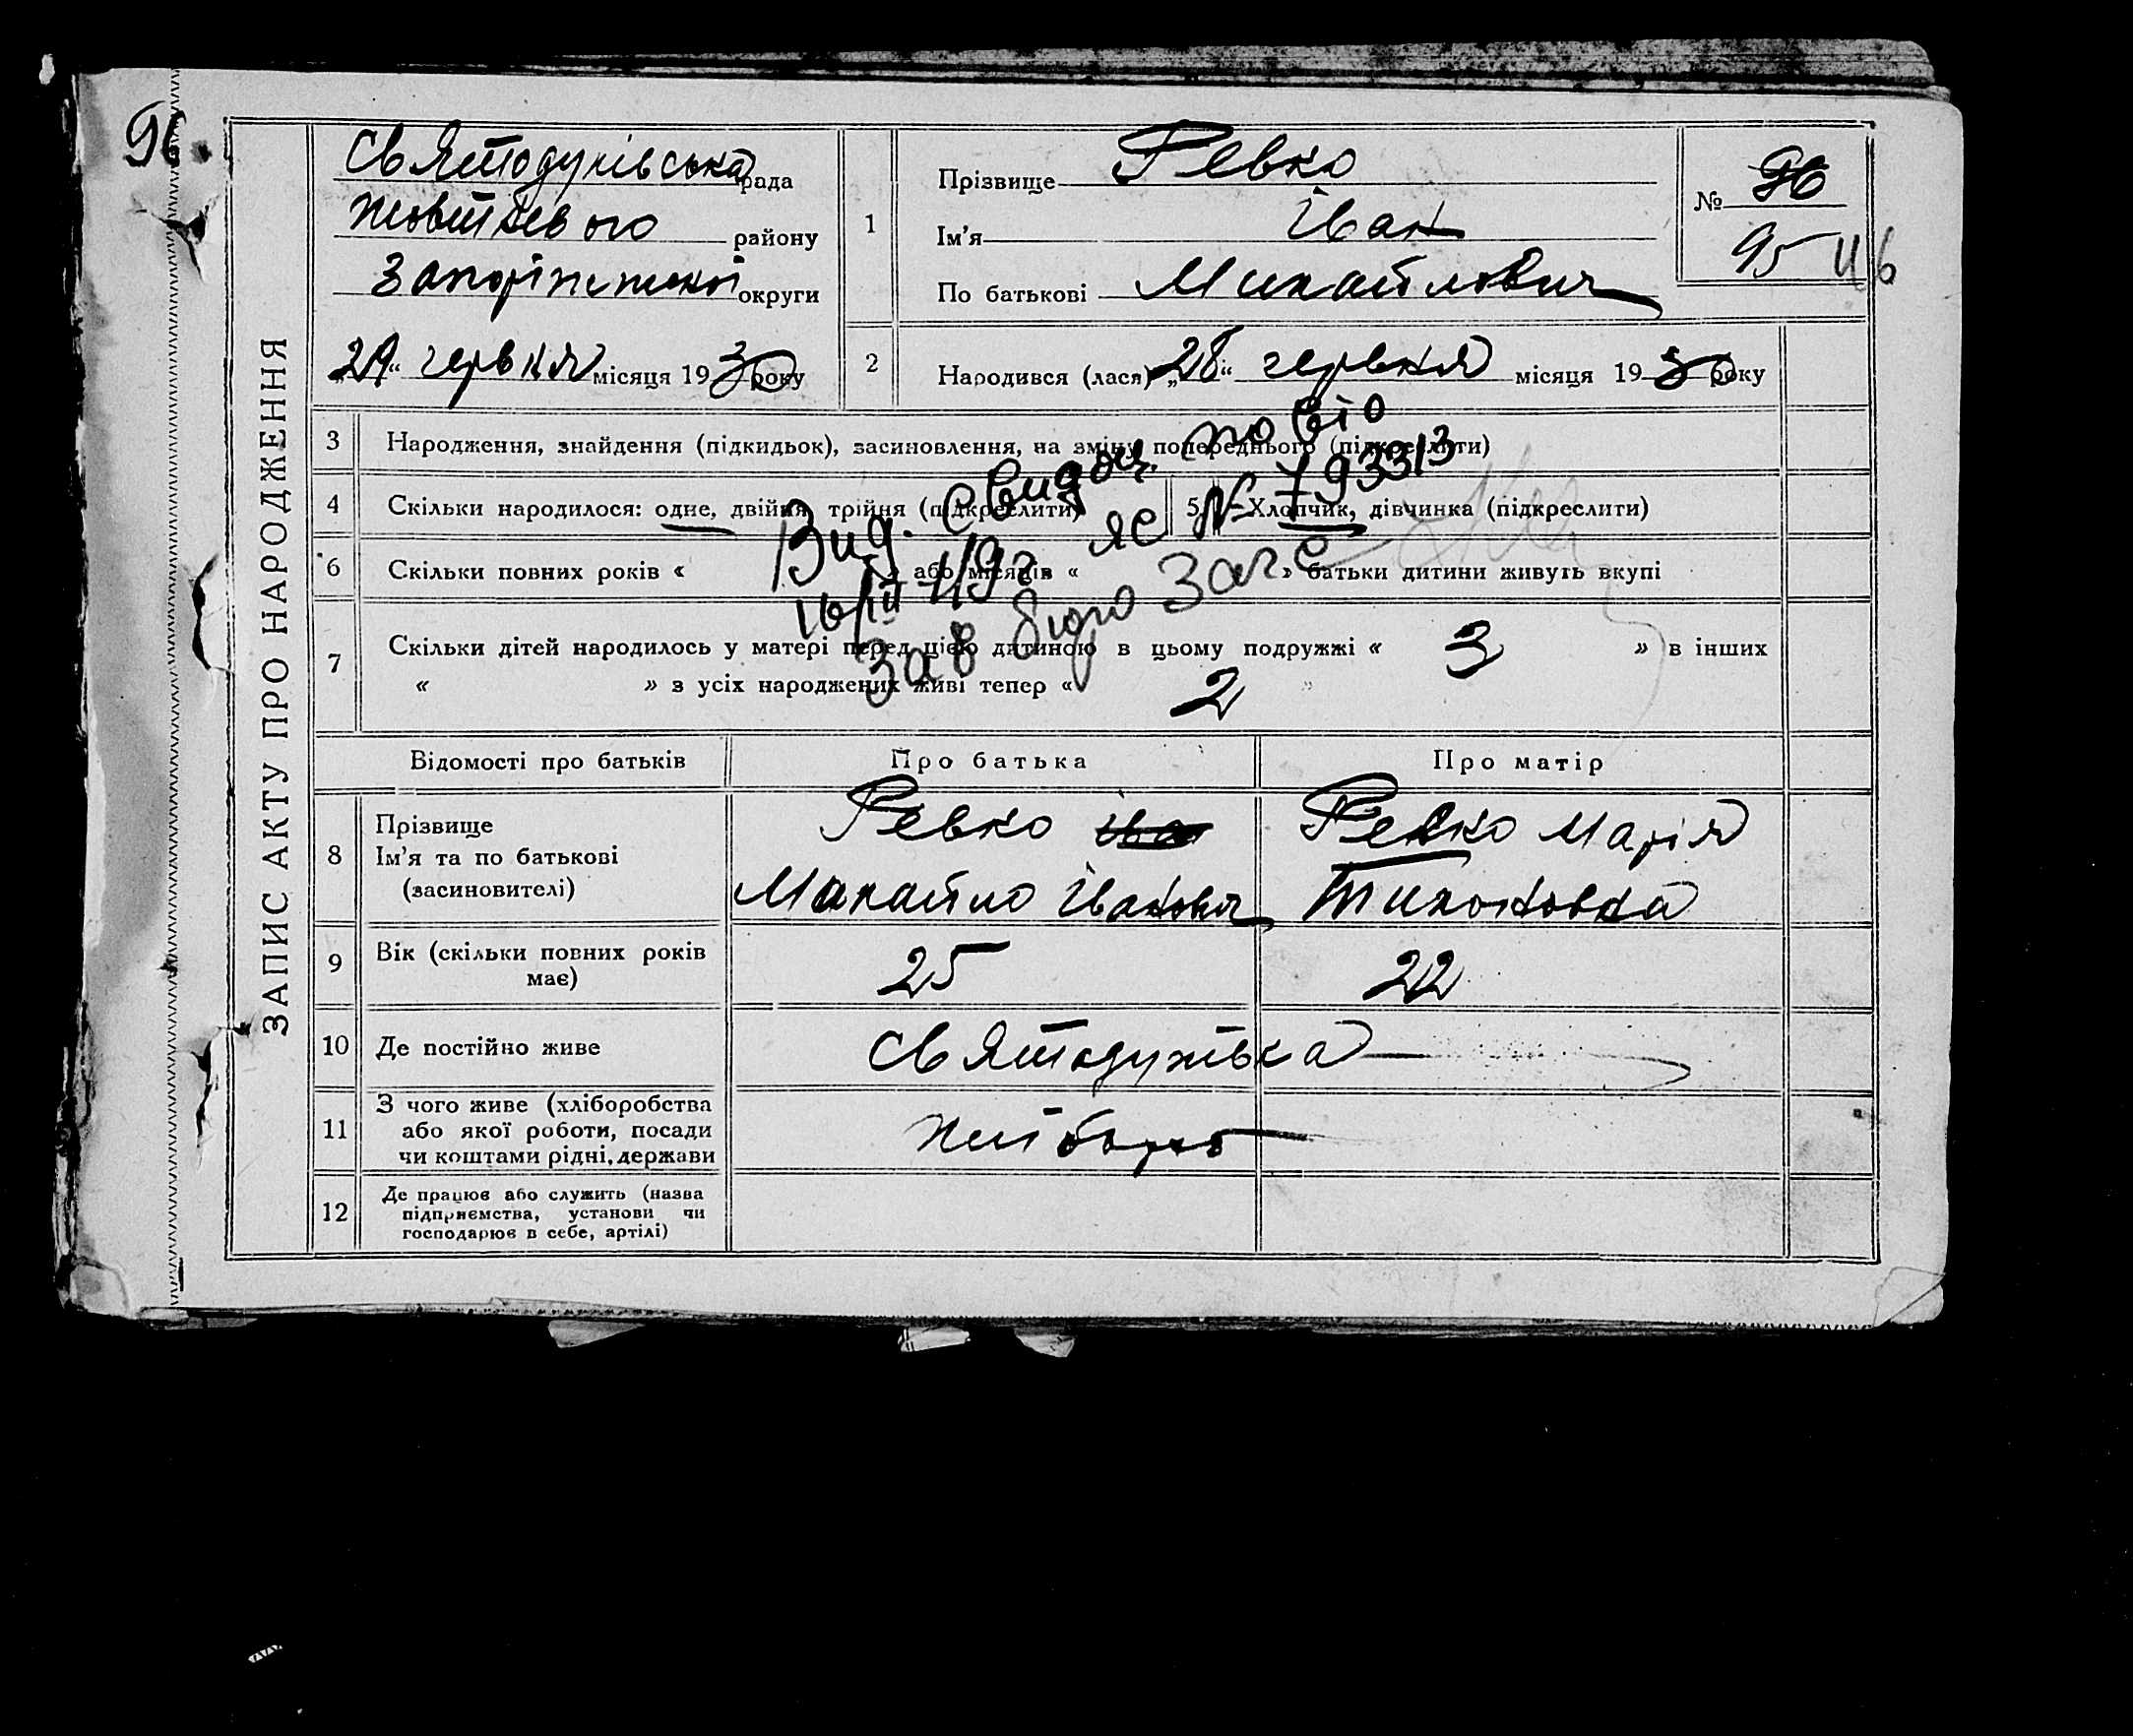 96.
ЗАПИС АКТУ ПРО НАРОДЖЕННЯ
Святодухівська рада
Жовтневого району
Запоріжської округи
„29“ червня місяця 1930 року
1
Прізвище Ревко
Ім'я Іван
По батькові Михайлович
№ 96
95
2
Народився (лася) „28“ червня місяця 1930 року
3 Народження, знайдення (підкидьок), засиновлення, на зміну попереднього (підкреслити)
4 Скільки народилося: одне, двійня, трійня (підкреслити)
5 Хлопчик, дівчинка (підкреслити)
6 Скільки повних років « » або місяців « » батьки дитини живуть вкупі
7 Скільки дітей народилось у матері перед цією дитиною в цьому подружжі « 3 » в інших
« » з усіх народжених живі тепер « 2 »
Вид. свидоц. повто
ЯС № 793313
Зав бюро Загс
Відомості про батьків Про батька Про матір
8 Прізвище
Ім'я та по батькові
(засиновителі)
Ревко Іва
Михайло Іванович
Ревко Марія
Тихоновна
9 Вік (скільки повних років
має)
25 22
10 Де постійно живе Святодухівка
11 З чого живе (хліборобства
або якої роботи, посади
чи коштами рідні, держави
хлібороб
12 Де працює або служить (назва
підприємства, установи чи
господарює в себе, артілі)